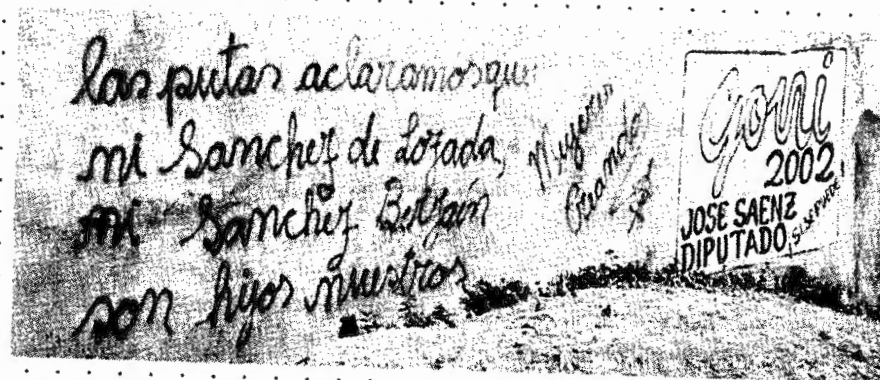 las putas aclaramos que
ni Sanchez de Lozada,
ni Sánchez Berzaín
son hijos nuestros
Mujeres
Creando
Goni
2002
JOSE SAENZ
DIPUTADO
SI SE PUEDE!